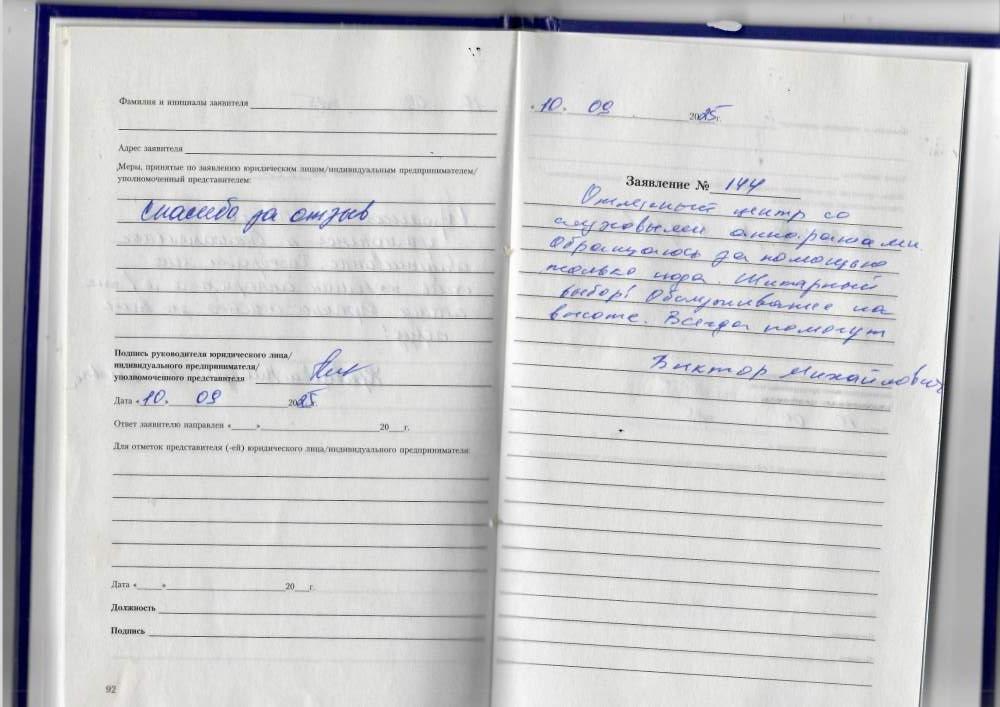 Фамилия и инициалы заявителя
Адрес заявителя
Меры, принятые по заявлению юридическим лицом/индивидуальным предпринимателем/
уполномоченный представителем:
Спасибо за отзыв
Подпись руководителя юридического лица/
индивидуального предпринимателя/
уполномоченного представителя
Дата «10» 09 2025г.
Ответ заявителю направлен «___» 20__г.
Для отметок представителя (-ей) юридического лица/индивидуального предпринимателя:
Дата «___» 20__г.
Должность
Подпись
92
«10. 09 2025г.
Заявление № 144
Отличный центр со
слуховыми аппаратами.
Обращаюсь за помощью
только сюда. Шикарный
выбор! Обслуживание на
высоте. Всегда помогут
Виктор Михайлович